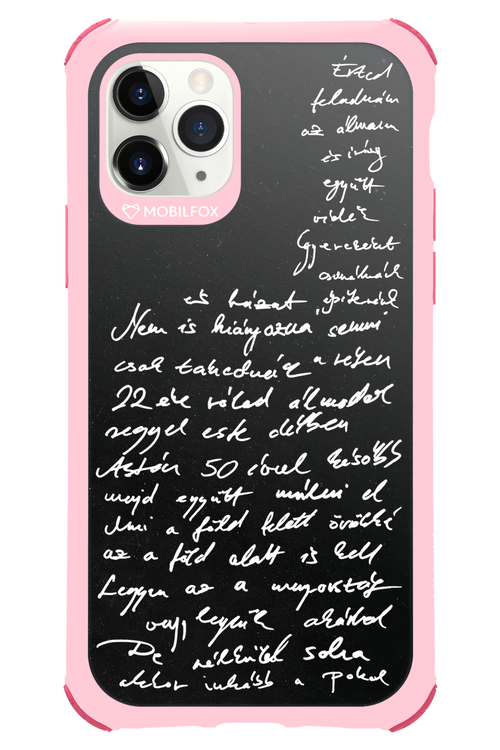 MOBILFOX
Érted
feladnám
az álmaim
és így
együtt
vidék
Gyerekeket
csinálnánk
és házat építenénk
Nem is hiányozna semmi
csak takaródzz a
22 éve rólad álmodok
reggel este délben
Aztán 50 évvel később
majd együtt múlni el
Ami a föld felett örökké
az a föld alatt is kell
Legyen az a mennyország
vagy legyünk akárhol
De nélküled soha
akkor inkább a pokol